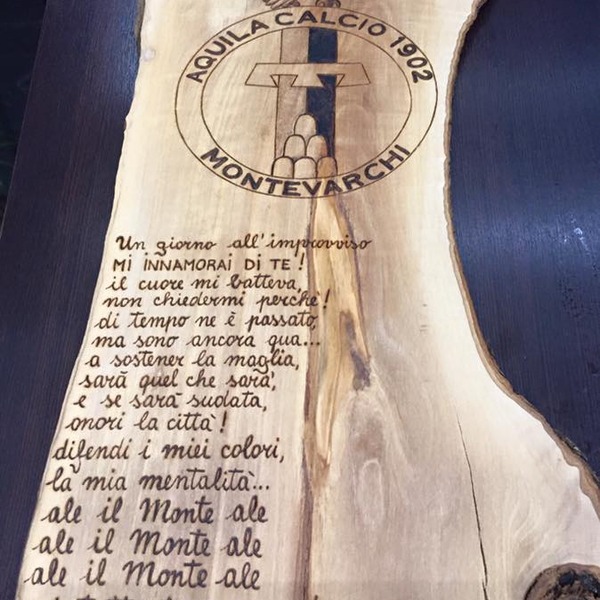 AQUILA CALCIO 1902
MONTEVARCHI
Un giorno all'improvviso
MI INNAMORAI DI TE!
il cuore mi batteva,
non chiedermi perchè!
di tempo ne è passato,
ma sono ancora qua...
a sostener la maglia,
sarà quel che sarà,
e se sarà sudata,
onori la città!
difendi i miei colori,
la mia mentalità...
ale il Monte ale
ale il Monte ale
ale il Monte ale